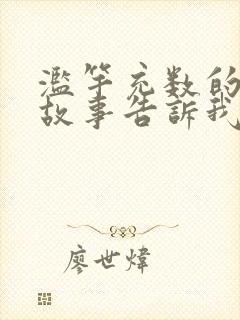 濫竽充数的
故事告訴我
廖世煒